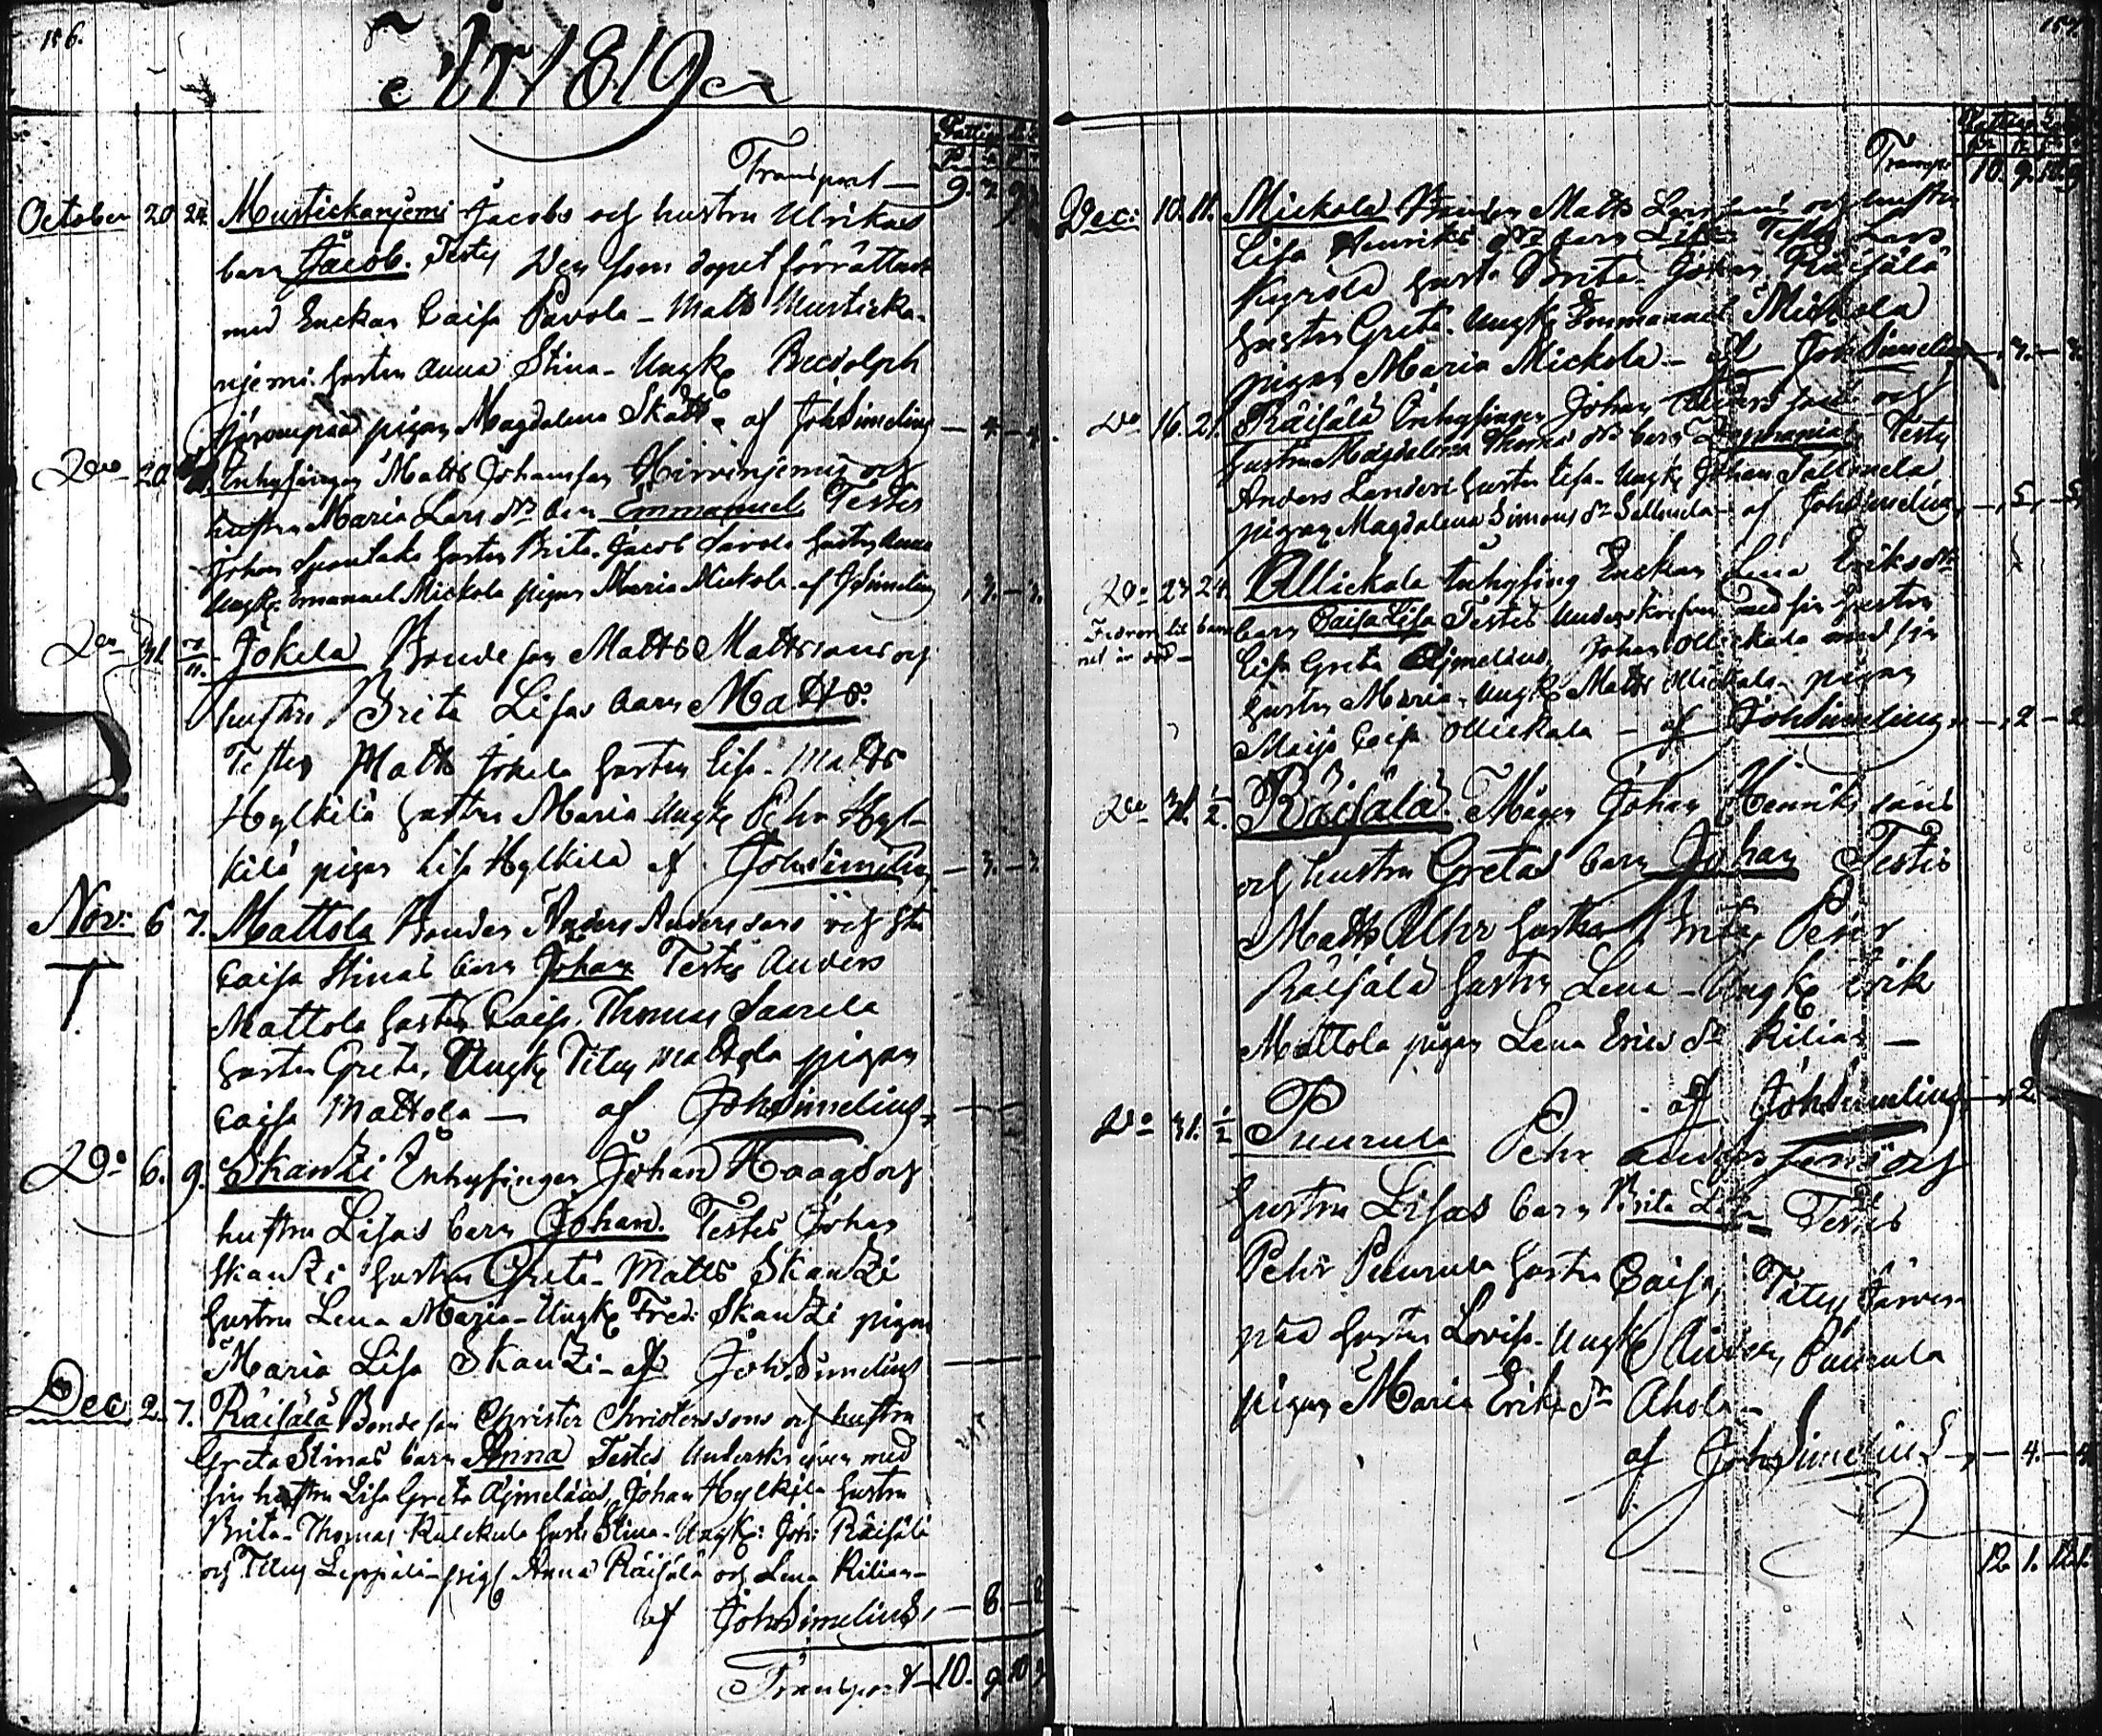 156.
År 1819
Transport — 9. 7. 9.
October 20. 24. Mustickanjemi Jacobs och hustru Ulrikas
barn Jacob. Testes Den som dopet förrättade
med Enckan Caisa Pavola - Matts Musticka-
njemi hustru Anna Stina - Ungk
pigan Magdalena Skatt - af JohSimelius — 4 — 4
Do 20. Inhysingen Matts Johansson Hirvinjemis och
hustru Maria Lars dr barn Emmanuel Testes
Johan hustru Brita. Jacob Savola hustru Anna
Ungk. Emanuel Mickola pigan Maria Mickola af JSimelius 3. — 3.
Do 31. 7/11. Jokela Bondeson Matts Mattssons och
hustru Brita Lisas barn Matts.
Testes Matts Jokela hustru Lisa - Matts
Hylkilä hustru Maria Ungk Pehr Hyl-
kilä pigan Lisa Hylkilä af JohSimelius — 3. — 3
Nov: 6 7. Mattola Bonden Anders Anderssons och hu
Caisa Stinas barn Johan Testes Anders
Mattola hustru Caisa. Thomas Saurela
hustru Greta, Ungk Mattola pigan
Caisa Mattola — af JohSimelius,
Do 6. 9. Skantzi Inhysingen Johan Haags och
hustru Lisas barn Johan. Testes Johan
Skantzi hustru Greta - Matts Skantzi
hustru Lena Maria - Ungk Fred: Skantzi pigan
Maria Lisa Skantzi - af JohSimelius
Dec 2. 7. Räisälä Bondeson Christer Christerssons och hustru
Greta Stinas barn Anna Testes Underskrifven med
sin hustru Lisa Greta Ajmelæus, Johan Hylkilä hustru
Brita - Thomas Kulckula hustr Stina - Ungk: Joh: Räisälä
och Leppälä - pig Anna Räisälä och Lena Kilian -
af JohSimelius, — 8. — 8
Transport — 10. 9. 10 9
157
Transp: 10. 9. 10. 9
Dec: 10. 11. Mickola Bonden Matts Larssons och hustru
Lisa Henriks dr barn Testes Lars
Kyrölä hustr Brita - Johan Räisälä
hustru Greta - Ungk Emmanuel Mickola
pigan Maria Mickola - af JohSimelius — 3. — 3.
Do 16. 21. Räisälä Inhysingen Johan och
hustru Magdalena Thomas dr barn Testes
Anders hustru Lisa - Ungk Johan
pigan Magdalena Simons dr af JohSimelius — 5 — 5
Do 23 24. Ollickala Inhysing Enckan Lena Eriks dr
barn Caisa Lisa Testes Underskrifven med sin hustru
Lisa Greta Ajmelæus, Johan Ollickala med sin
hustru Maria - Ungk Matts Ollickala - pigan
Maija Caisa Ollickala — af JohSimelius — 2 — 2
Fadren til barnet är död —
Do 31. 1/2. Räisälä. Mågen Johan Henrikssons
och hustru Gretas barn Johan Testes
Matts Uhr hustru Brita, Pehr
Räisälä hustru Lena - Ungk Erik
Mattola pigan Lena Erics dr Kilian —
af JohSimelius — 2
Do 31. 1/2 Puurula Pehr Anderssons och
hustru Lisas barn Brita Lisa Testes
Pehr Puurula hustru Caisa, Järven-
pää hustru Lovisa - Ungk Anders Puurula
pigan Maria Eriks dr Ahola -
af JohSimelius — 4. — 4
12. 1. 12. 1.